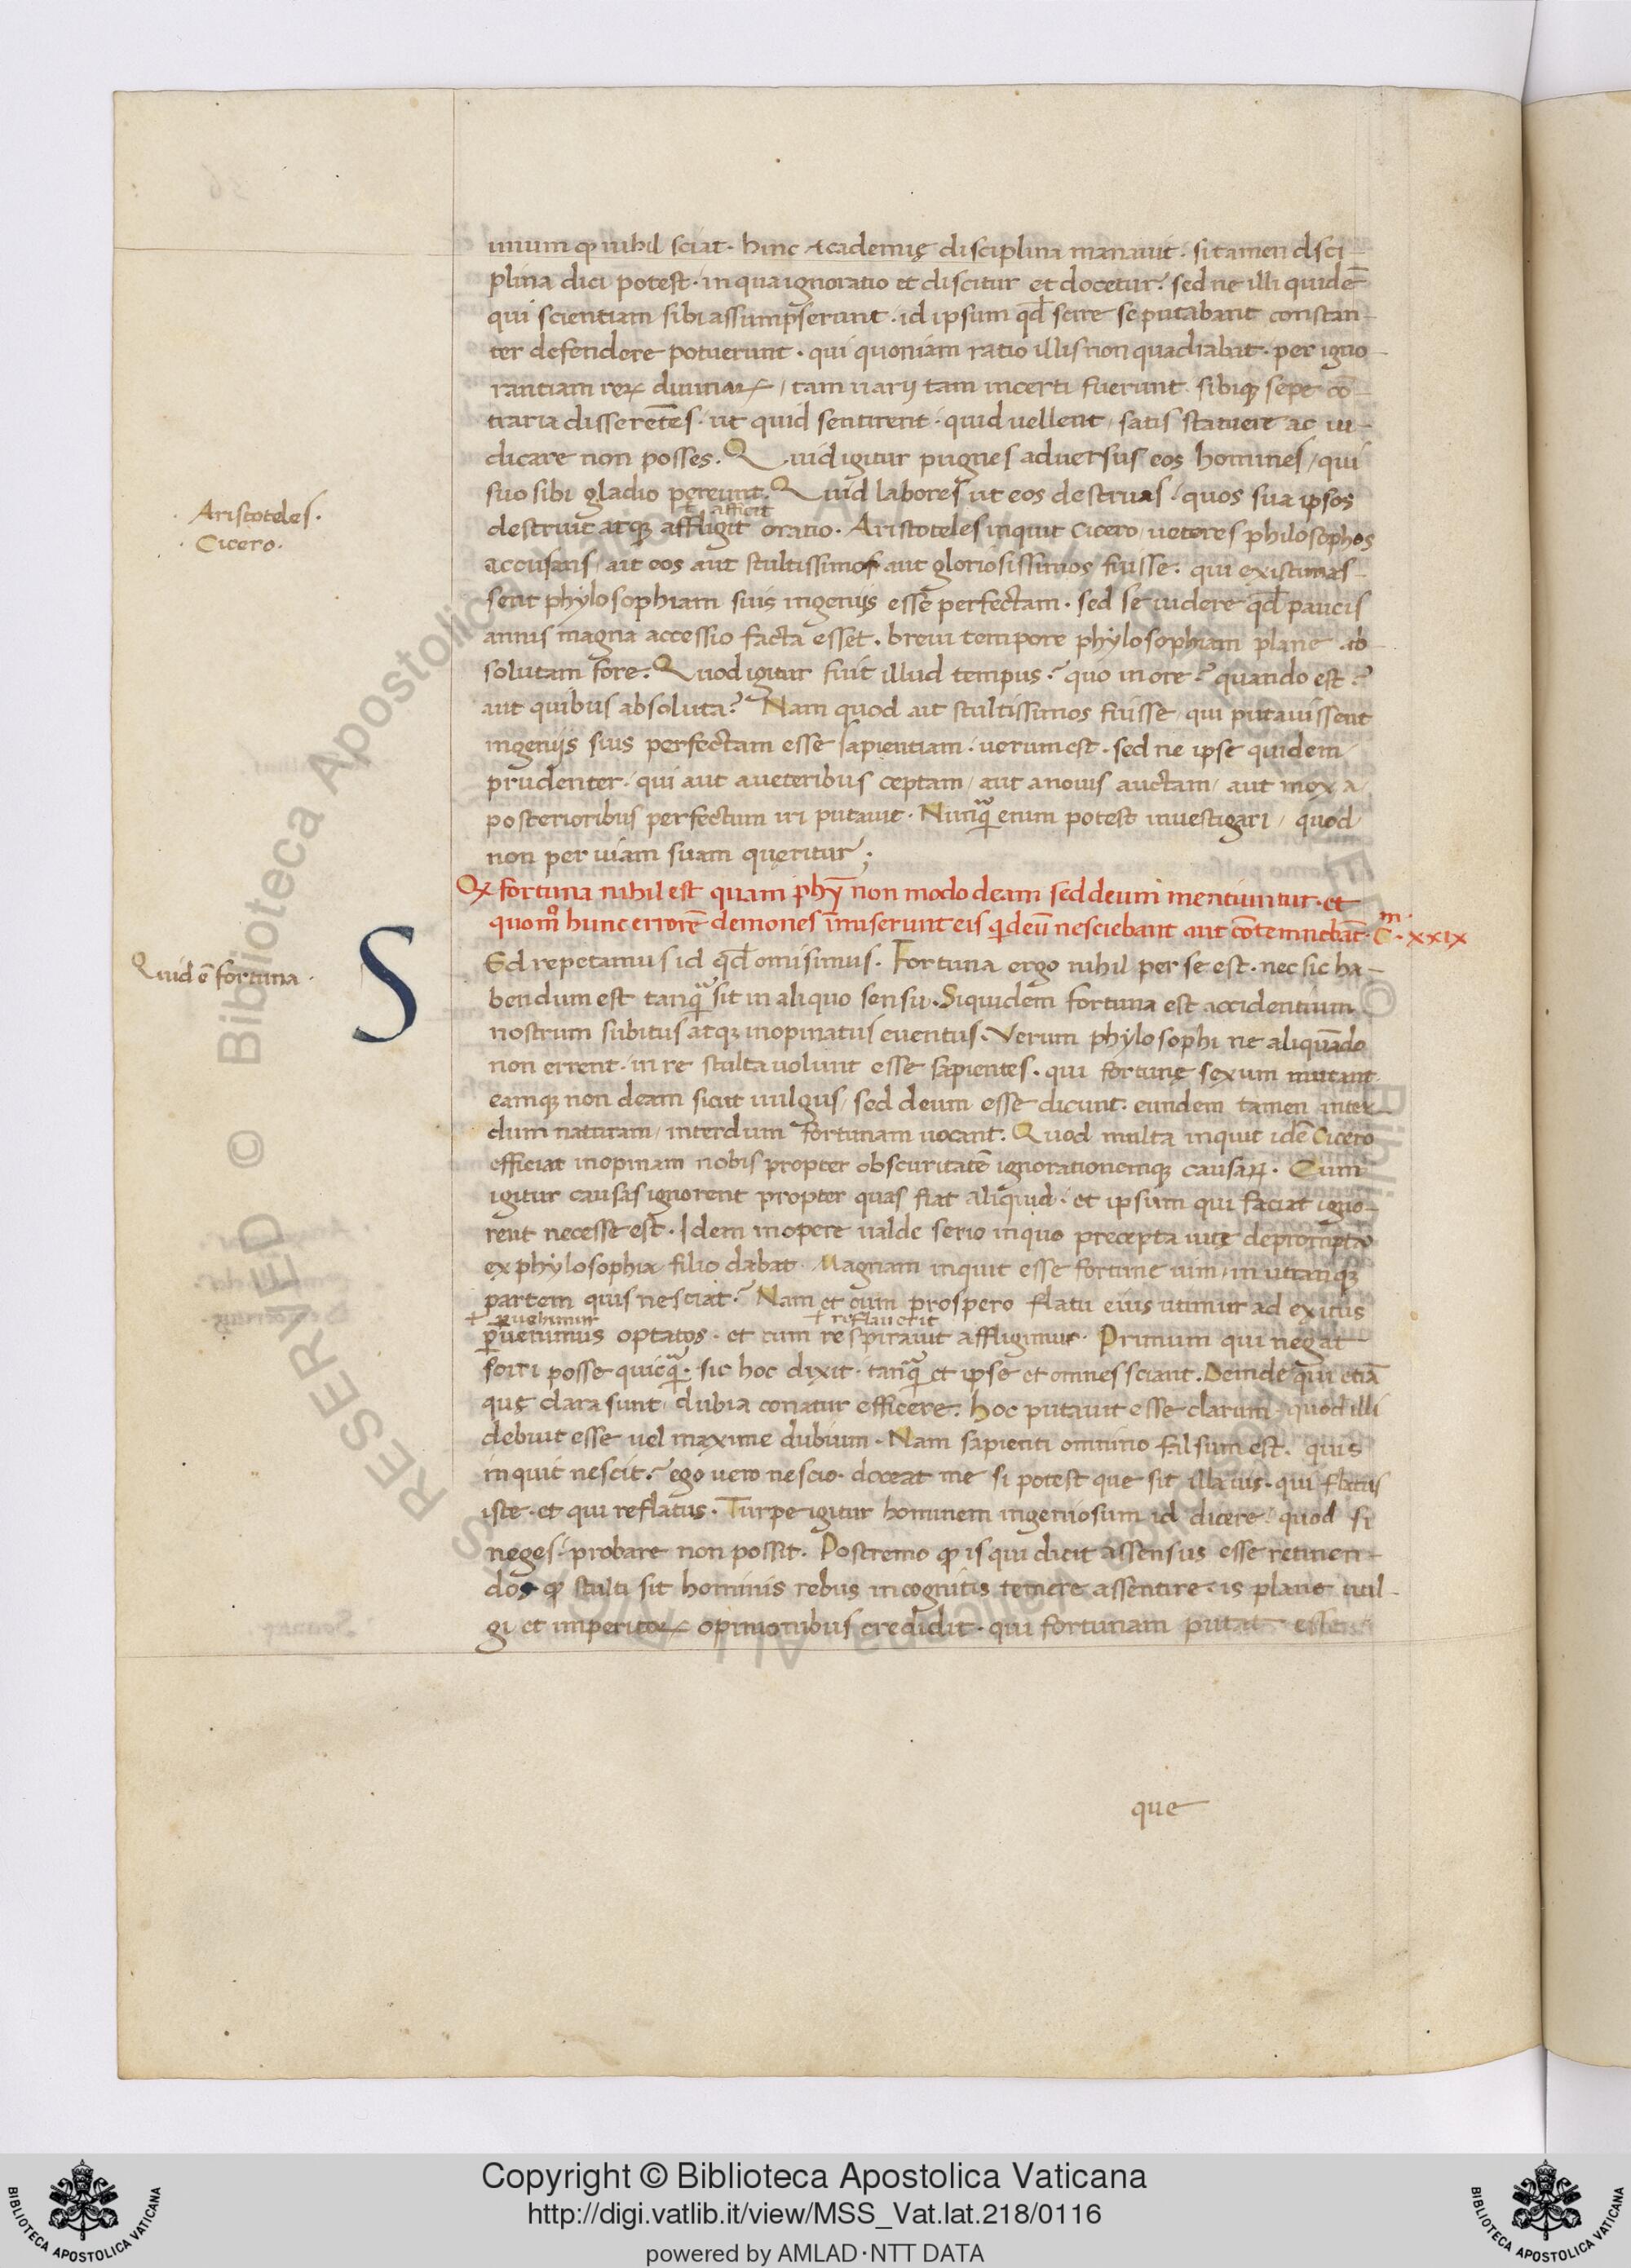 unum ꝙ nihil sciat. hinc Academię disciplina manauit. si tamen dsci-
plina dici potest. in qua ignoratio et discitur et docetur. sed ne illi quidē
qui scientiam sibi assumpserunt. id ipsum qd̄ scire se putabant constan-
ter defendere potuerunt. qui quoniam ratio illis non quadrabat. per igno-
rantiam reꝝ diuinaꝝ, tam uarij tam incerti fuerunt. sibiqꝫ sepe cō-
traria disserētes. ut quid sentirent. quid uellent, satis statuere ac iu-
dicare non posses. Quid igitur pugnes aduersus eos homines, qui
suo sibi gladio pereunt. Quid labores ut eos destruas, quos sua ipsos
ł afficit
destruit atqꝫ affligit oratio. Aristoteles inquit Cicero, ueteres philosophos
Aristoteles.
Cicero.
accusans, ait eos aut stultissimos aut gloriosissimos fuisse. qui existimas-
sent phylosophiam suis ingenijs esse perfectam. sed se uidere qd̄ paucis
annis magna accessio facta esset. breui tempore phylosophiam plane ab
solutam fore. Quod igitur fuit illud tempus? quo in ore? quando est?
aut quibus absoluta? Nam quod ait stultissimos fuisse, qui putauissent
ingenijs suis perfectam esse sapientiam. uerum est. sed ne ipse quidem
prudenter. qui aut a ueteribus ceptam, aut a nouis auctam, aut mox a
posterioribus perfectum iri putauit. Nunqꝫ enim potest inuestigari, quod
non per uiam suam queritur;
Qꝫ fortuna nihil est quam phȳ non modo deam sed deum mentiuntur. et
quomō hunc errorē demones īmiserunt eis qͥ deū nesciebant aut cōtemnebāt. Cᵐ. xxix
Quid ē fortuna.
Sed repetamus id qd̄ omisimus. Fortuna ergo nihil per se est. nec sic ha-
bendum est tanqꝫ sit in aliquo sensu. Siquidem fortuna est accidentium
nostrum subitus atqꝫ inopinatus euentus. Verum phylosophi ne aliquādo
non errent. in re stulta uolunt esse sapientes. qui fortunę sexum mutant.
eamqꝫ non deam sicut uulgus, sed deum esse dicunt. eundem tamen inter-
dum naturam, interdum fortunam uocant. Quod multa inquit idē Cicero
efficiat inopinam nobis propter obscuritatē ignorationemqꝫ causaꝝ. Cum
igitur causas ignorent propter quas fiat aliquid. et ipsum qui faciat igno-
rent necesse est. Idem in opere ualde serio in quo precepta uitę deprompta
ex phylosophia filio dabat. Magnam inquit esse fortune uim, in utranqꝫ
partem quis nesciat? Nam et cum prospero flatu eius utimur ad exitus
ł ꝑuehimur ł reflauerit
ꝑuenimus optatos. et cum respirauit affligimur. Primum qui negat
sciri posse quicqꝫ. sic hoc dixit. tanqꝫ et ipse et omnes sciant. Deinde qui etiā
quę clara sunt, dubia conatur efficere. hoc putauit esse clarum, quod illi
debuit esse uel maxime dubium. Nam sapienti omnino falsum est. quis
inquit nescit? ego uero nescio. doceat me si potest que sit illa uis. qui flatus
iste. et qui reflatus. Turpe igitur hominem ingeniosum id dicere, quod si
neges, probare non possit. Postremo ꝙ is qui dicit assensus esse retinen-
dos ꝙ stulti sit hominis rebus incognitis temere assentire. is plane uul-
gi et imperitoꝝ opinionibus credidit. qui fortunam putat esse
que
Copyright © Biblioteca Apostolica Vaticana
http://digi.vatlib.it/view/MSS_Vat.lat.218/0116
powered by AMLAD·NTT DATA
BIBLIOTECA APOSTOLICA VATICANA
BIBLIOTECA APOSTOLICA VATICANA